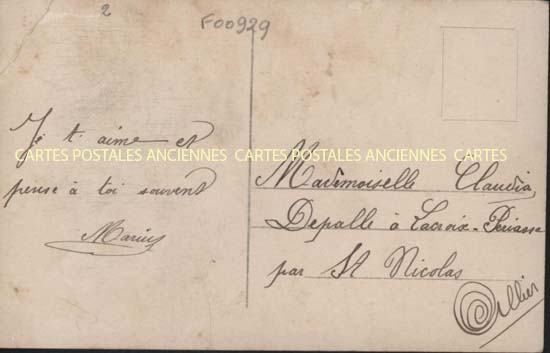 2
F00929
Je t'aime et
CARTES POSTALES ANCIENNES CARTES POSTALES ANCIENNES CARTES
pense à toi souvent
Marius
Mademoiselle Claudia
Depalle à Lacroix-
par St Nicolas
Allier